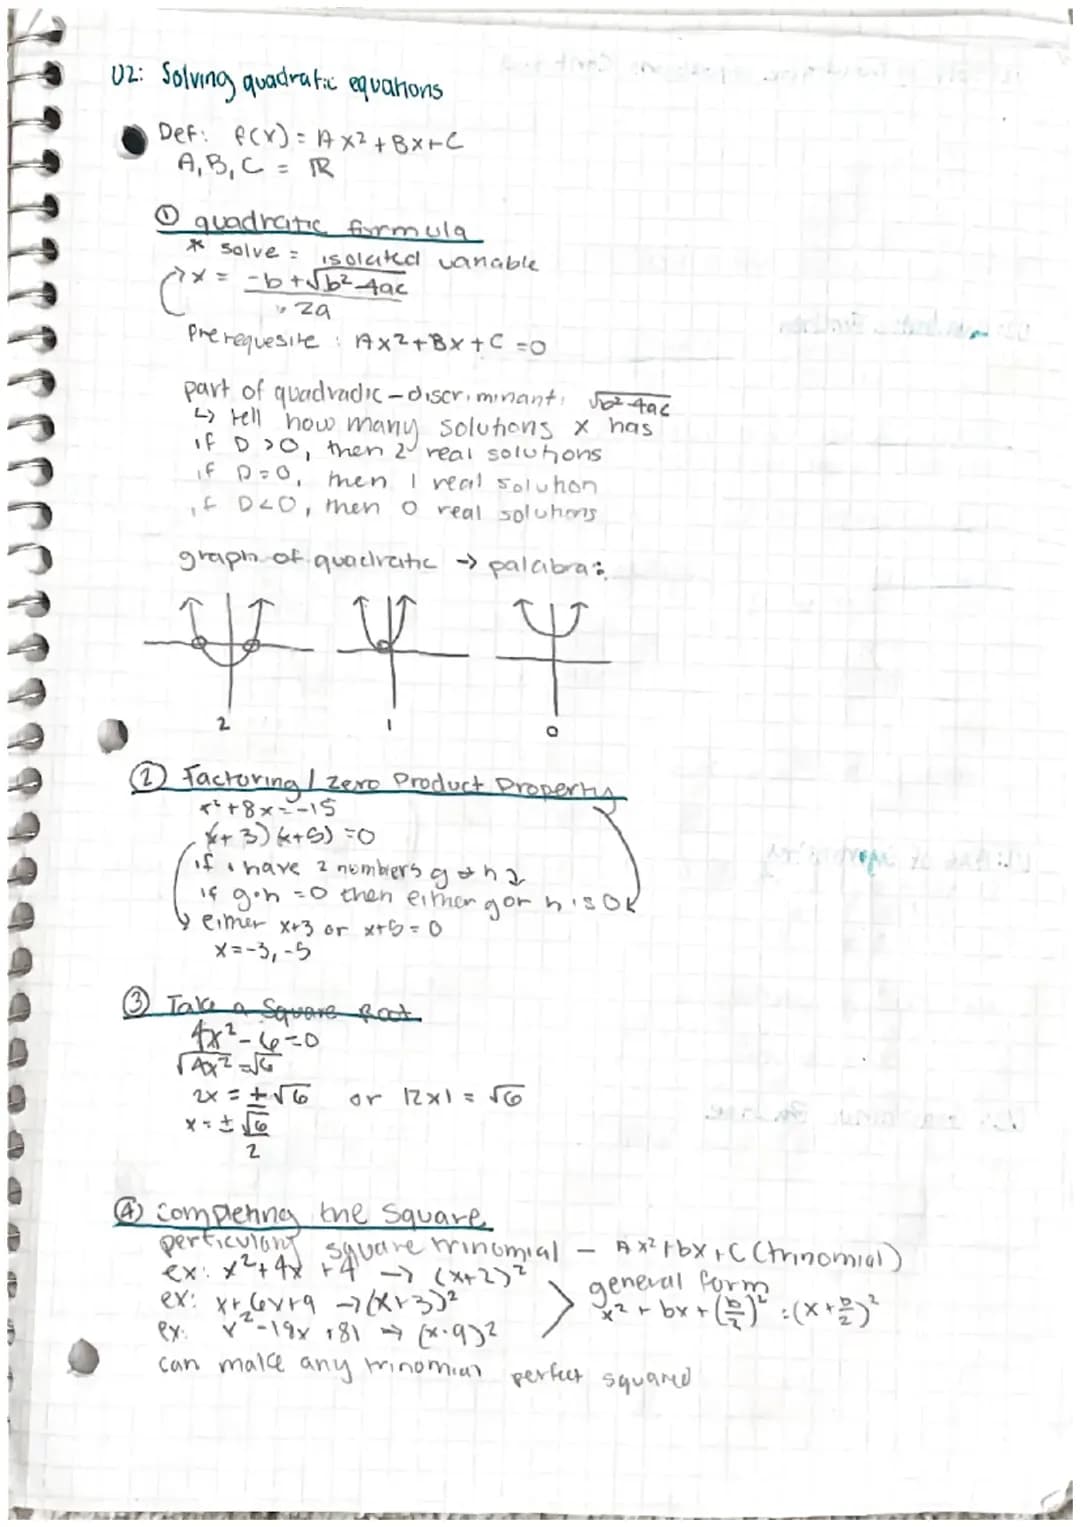 U2: Solving quadratic equations
Def: f(x) = Ax² + Bx + C
A, B, C = ℝ
① quadratic formula
* solve = isolated variable
→ x = -b + √b²-4ac
2a
Prerequesite : Ax² + Bx + C = 0
part of quadradic - discriminant: √b²-4ac
↳ tell how many solutions x has
if D > 0, then 2 real solutions
if D = 0, then 1 real solution
if D < 0, then 0 real solutions
graph of quadratic → palabra:
2 1 0
② Factoring / Zero Product Property
x² + 8x = -15
(x+3)(x+5) = 0
if i have 2 numbers g + h
if g·h = 0 then either g or h is 0
either x+3 or x+5 = 0
x = -3, -5
③ Take a Square Root
4x² - 6 = 0
√4x² = √6
2x = ± √6 or |2x| = √6
x = ± √6
2
④ Completing the Square
square trinomial - Ax² + bx + C (trinomial)
ex: x² + 4x + 4 → (x+2)²
general form
ex: x + 6x + 9 → (x+3)²
x² + bx + (b/2)² = (x + b/2)²
ex: x² - 18x + 81 → (x-9)²
can make any trinomial perfect squared